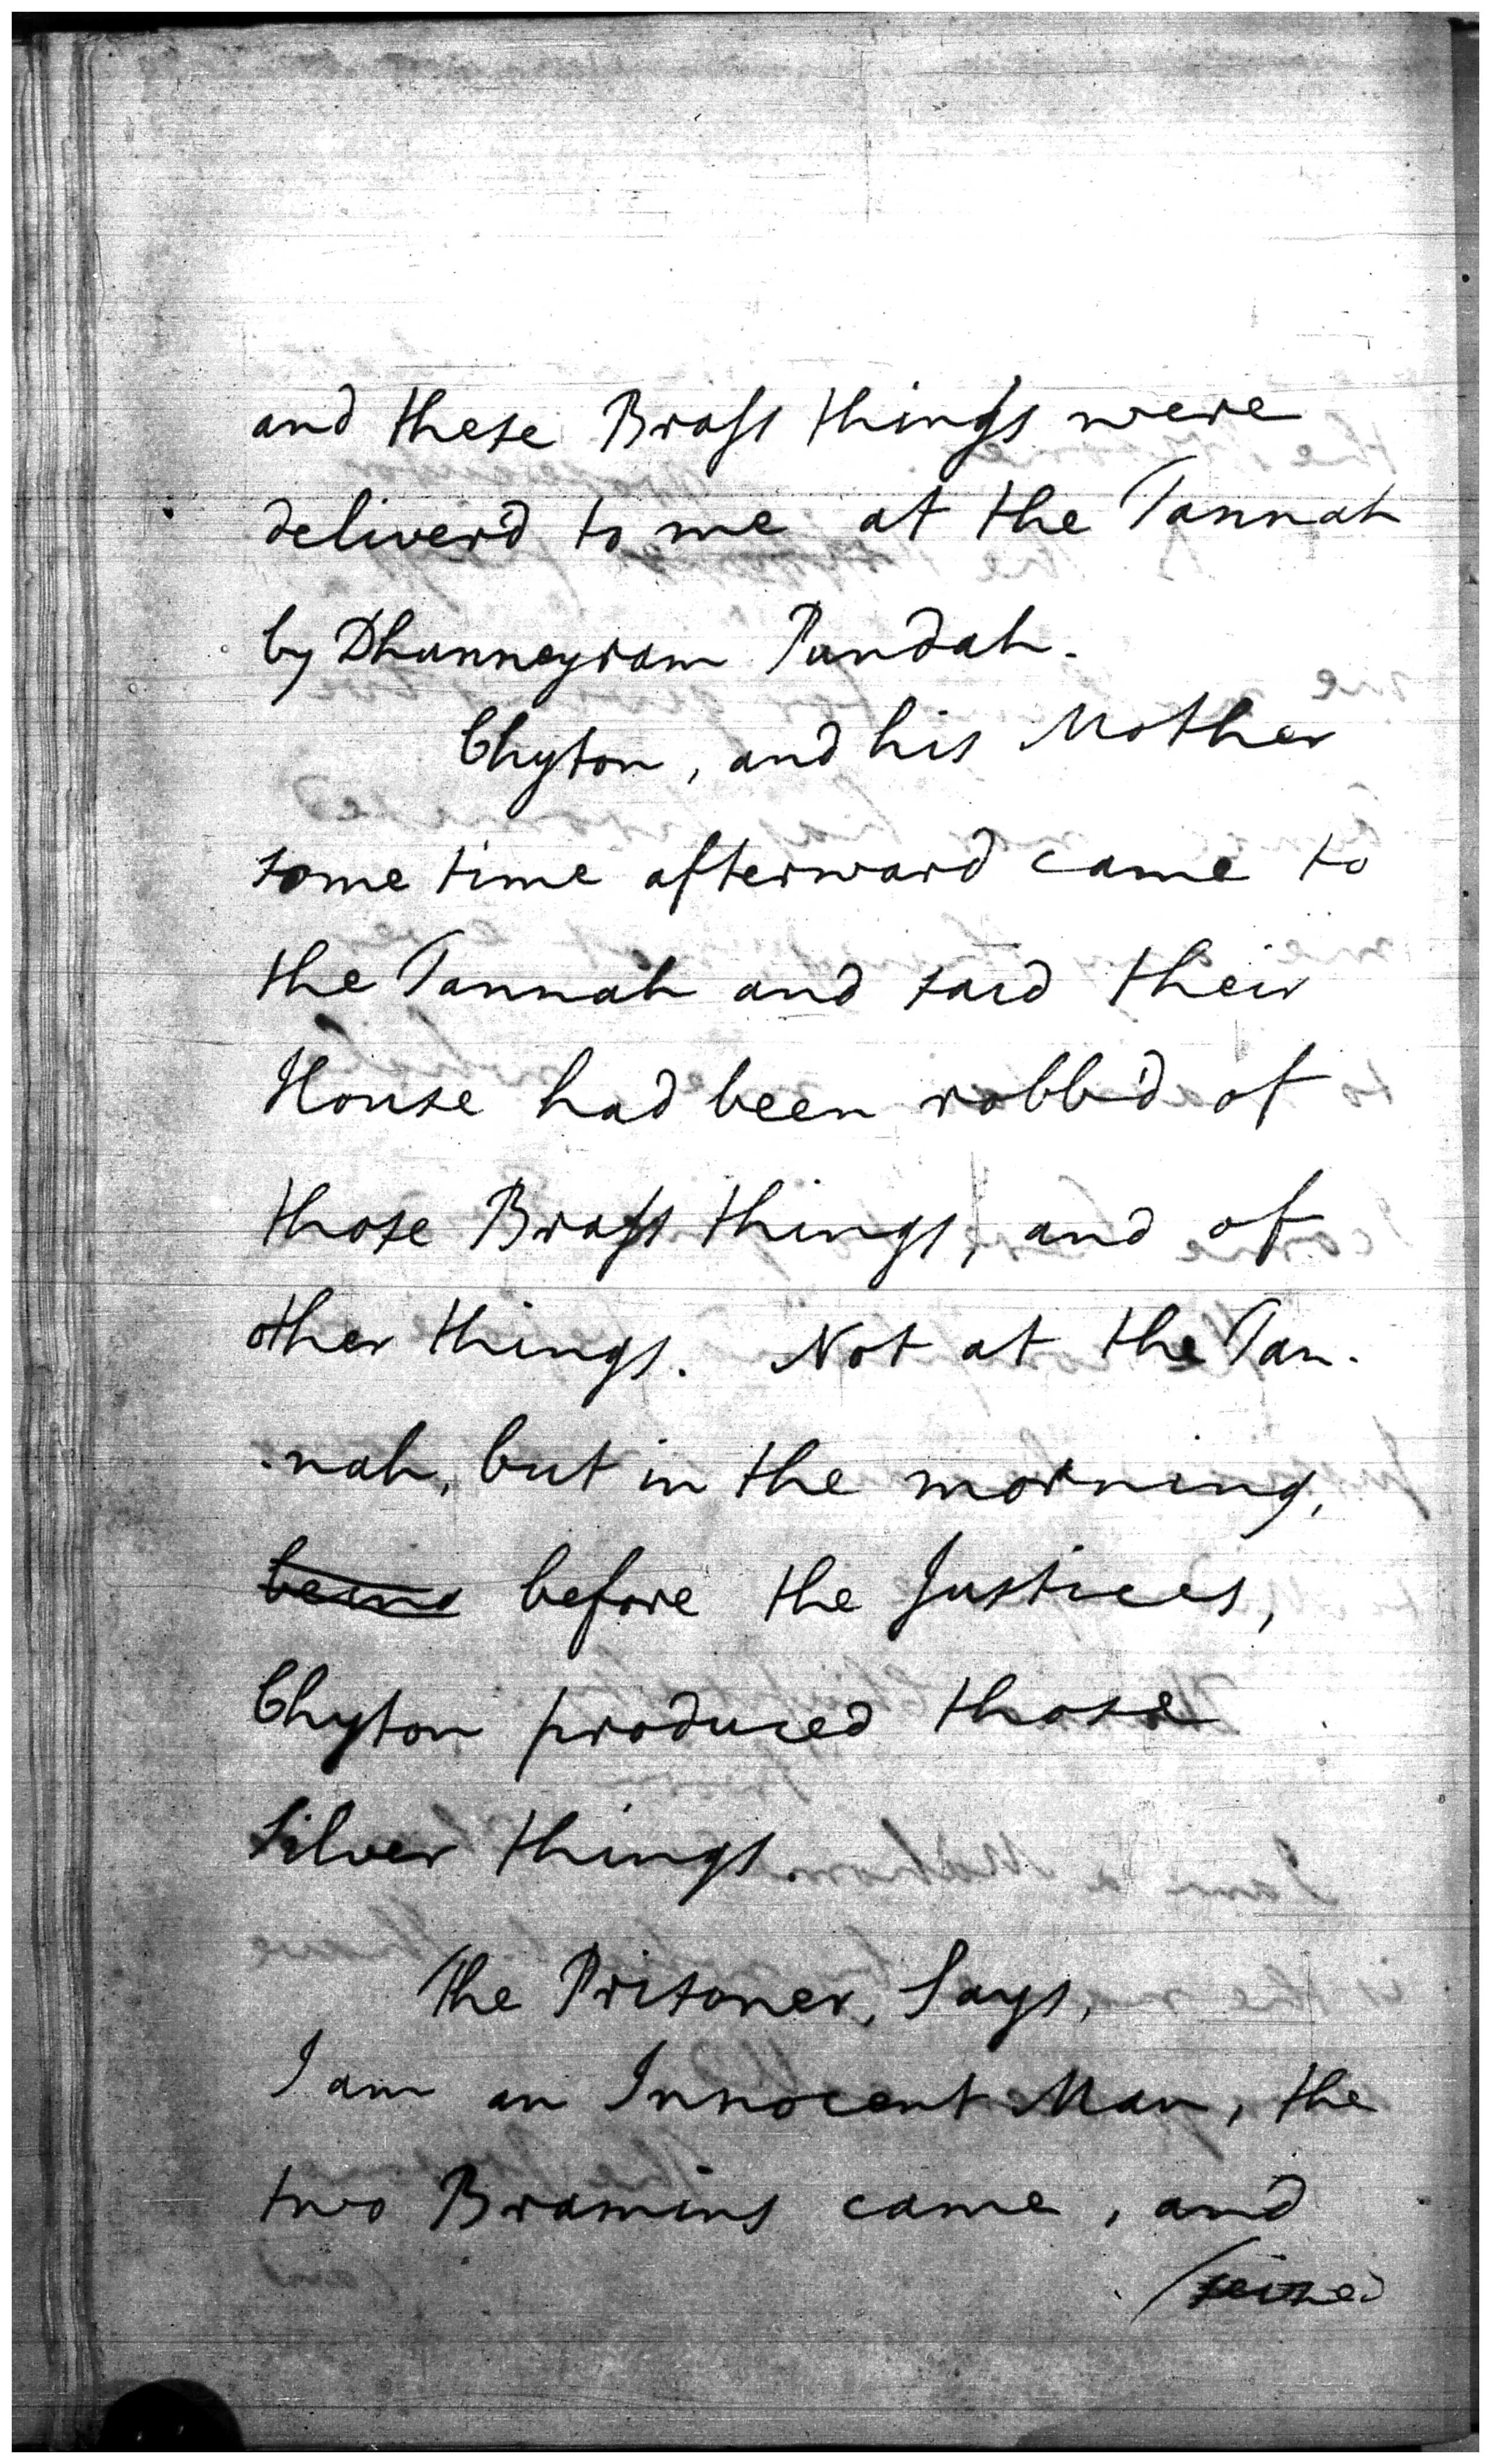 and these Brass things were
deliver'd to me at the Tannah
by Dhunneyram Pandah.
Chyton, and his Mother
some time afterward came to
the Tannah and said their
House had been robb'd of
those Brass things, and of
other things. Not at the Tan-
-nah, but in the morning,
before the Justices,
Chyton produced those
Silver things.
The Prisoner, Says,
I am an Innocent Man, the
two Bramins came, and
/seized